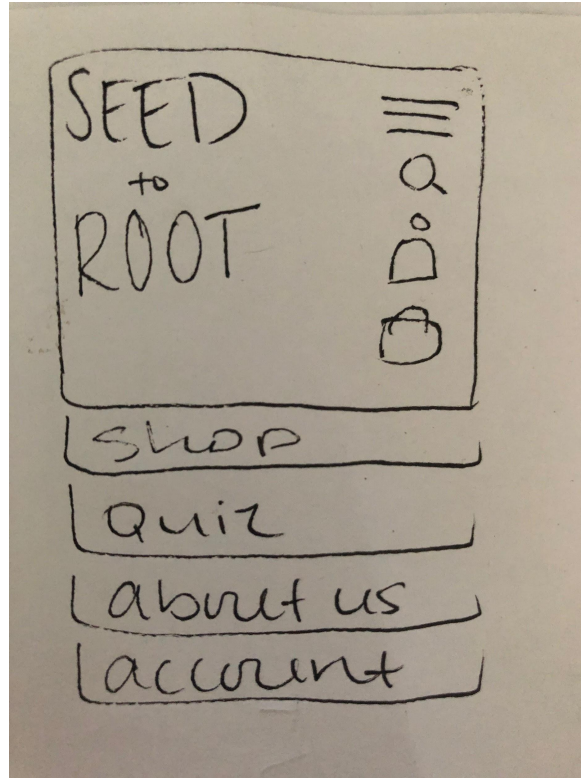 SEED
to
ROOT
shop
Quiz
about us
account